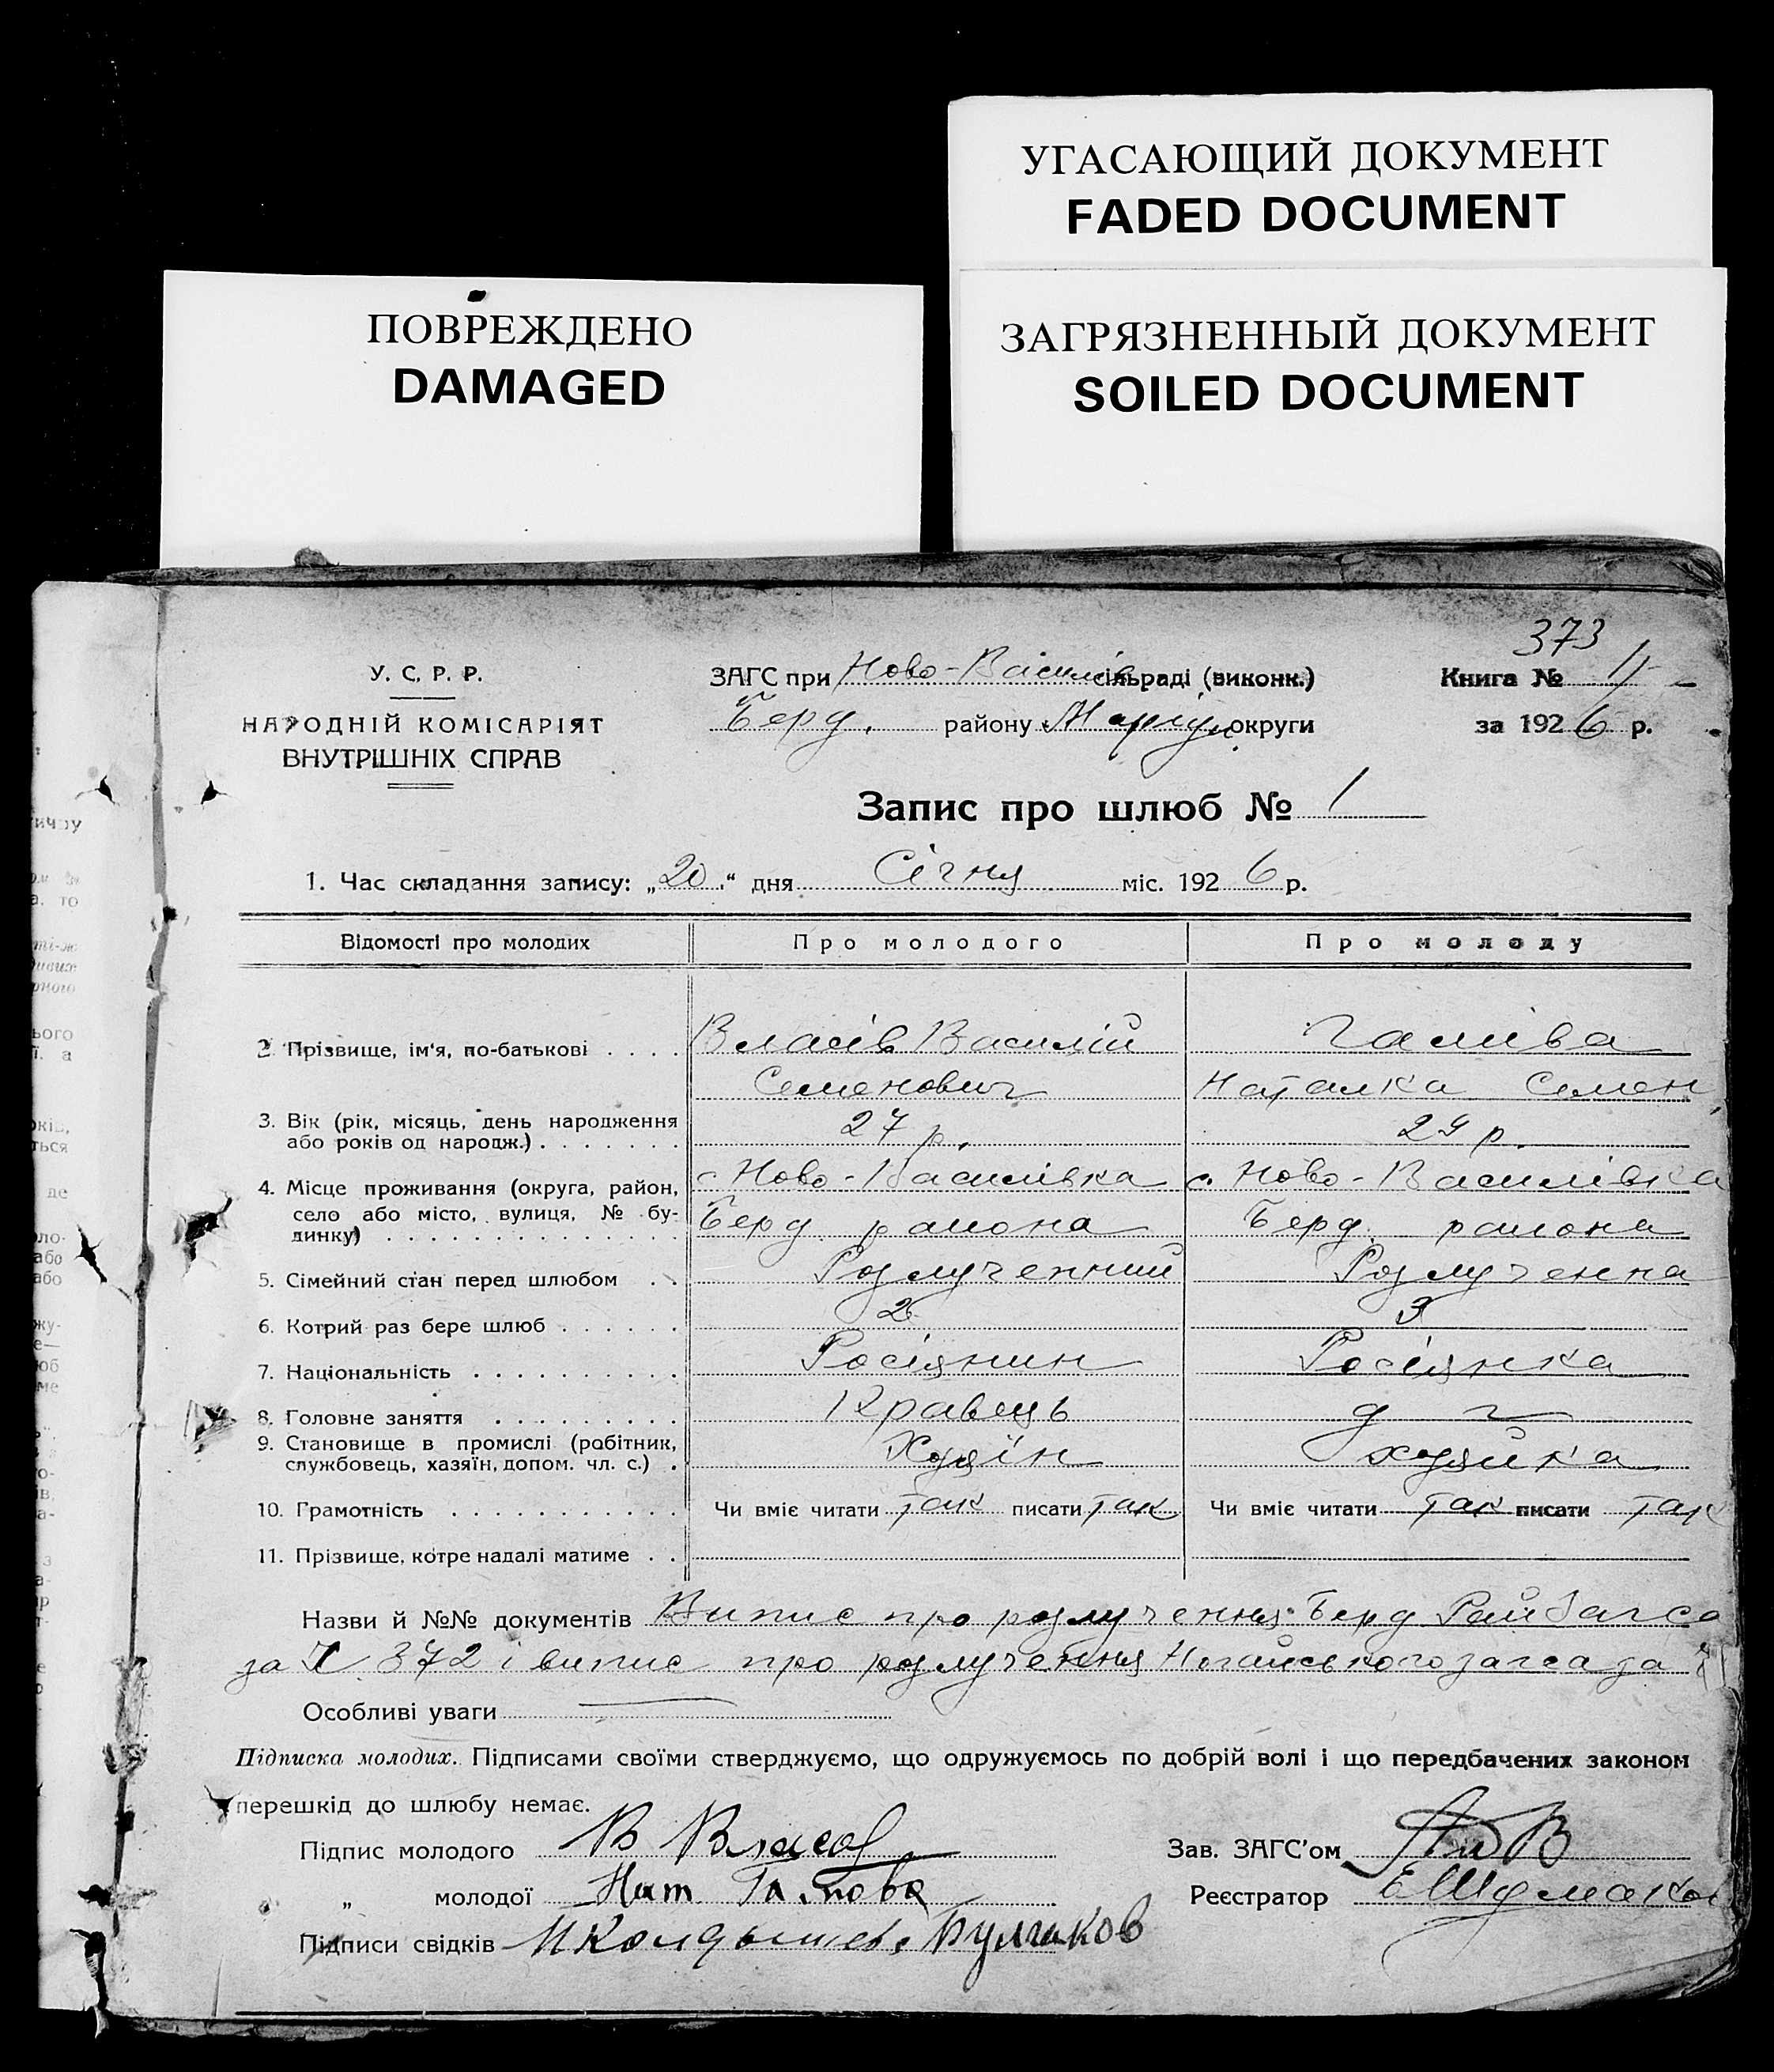 УГАСАЮЩИЙ ДОКУМЕНТ
FADED DOCUMENT
ПОВРЕЖДЕНО
DAMAGED
ЗАГРЯЗНЕННЫЙ ДОКУМЕНТ
SOILED DOCUMENT
373
У. С. Р. Р.
НАРОДНІЙ КОМІСАРІЯТ
ВНУТРІШНІХ СПРАВ
ЗАГС при Ново-Василів сільраді (виконк.)
Берд. району Маріуп. округи
Книга № II
за 1926 р.
Запис про шлюб № 1
1. Час складання запису: „20“ дня Січня міс. 1926 р.
Відомості про молодих Про молодого Про молоду
2. Прізвище, ім'я, по-батькові . . . . Власів Василій Галіва
Семенович Наталка Семен.
3. Вік (рік, місяць, день народження
або років од народж.) . . . . . . . 27 р. 29 р.
4. Місце проживання (округа, район, с. Ново-Василівка с. Ново-Василівка
село або місто, вулиця, № бу-
динку) . . . . . . . . . . . . . . Берд. района Берд. района
5. Сімейний стан перед шлюбом . . Розлученний Розлученна
6. Котрий раз бере шлюб . . . . . . 2 3
7. Національність . . . . . . . . . . Росіянин Росіянка
8. Головне заняття . . . . . . . . . Кравець д г
9. Становище в промислі (робітник,
службовець, хазяїн, допом. чл. с.) . Хозяїн хозяйка
10. Грамотність . . . . . . . . . . . Чи вміє читати так писати так Чи вміє читати так писати так
11. Прізвище, котре надалі матиме . .
Назви й №№ документів Випис про розлучення Берд Райзагса
за № 372 і випис про розлучення Ногайського загса за
Особливі уваги
Підписка молодих. Підписами своїми стверджуємо, що одружуємось по добрій волі і що передбачених законом
перешкід до шлюбу немає.
Підпис молодого В Власов Зав. ЗАГС'ом
„ молодої Нат. Галова Реєстратор
Підписи свідків Булгаков